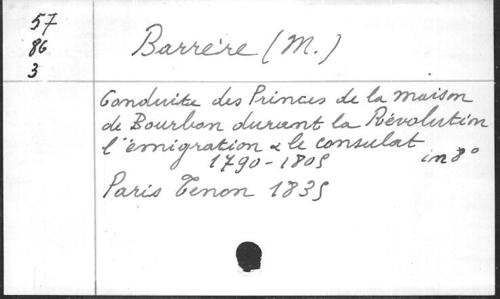 57
86
3
Barrère (M.)
Conduite des Princes de la maison
de Bourbon durant la Révolution
l'émigration & le consulat
1790-1805 in 8°
Paris Tenon 1835